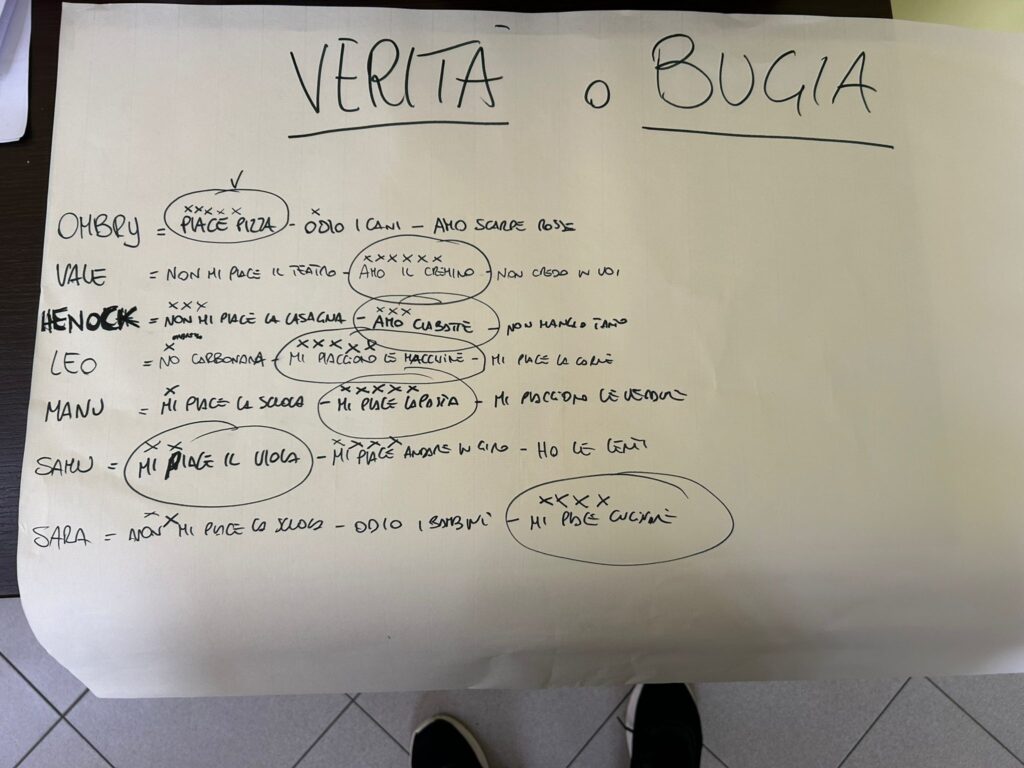 VERITÀ o BUGIA
OMBRY = PIACE PIZZA - ODIO I CANI - AMO SCARPE ROSSE
VALE = NON MI PIACE IL TEATRO - AMO IL CREMINO - NON CREDO IN VOI
HENOCK = NON MI PIACE LA LASAGNA - AMO CIABATTE - NON MANGIO TANO
LEO = NO CARBONARA - MI PIACCIONO LE MACCHINE - MI PIACE LA CARNE
MANU = MI PIACE LA SCUOLA - MI PIACE LA PASTA - MI PIACCIONO LE VERDURE
SAMU = MI PIACE IL VIOLA - MI PIACE ANDARE IN GIRO - HO LE LENTI
SARA = NON MI PIACE LA SCUOLA - ODIO I BAMBINI - MI PIACE CUCINARE